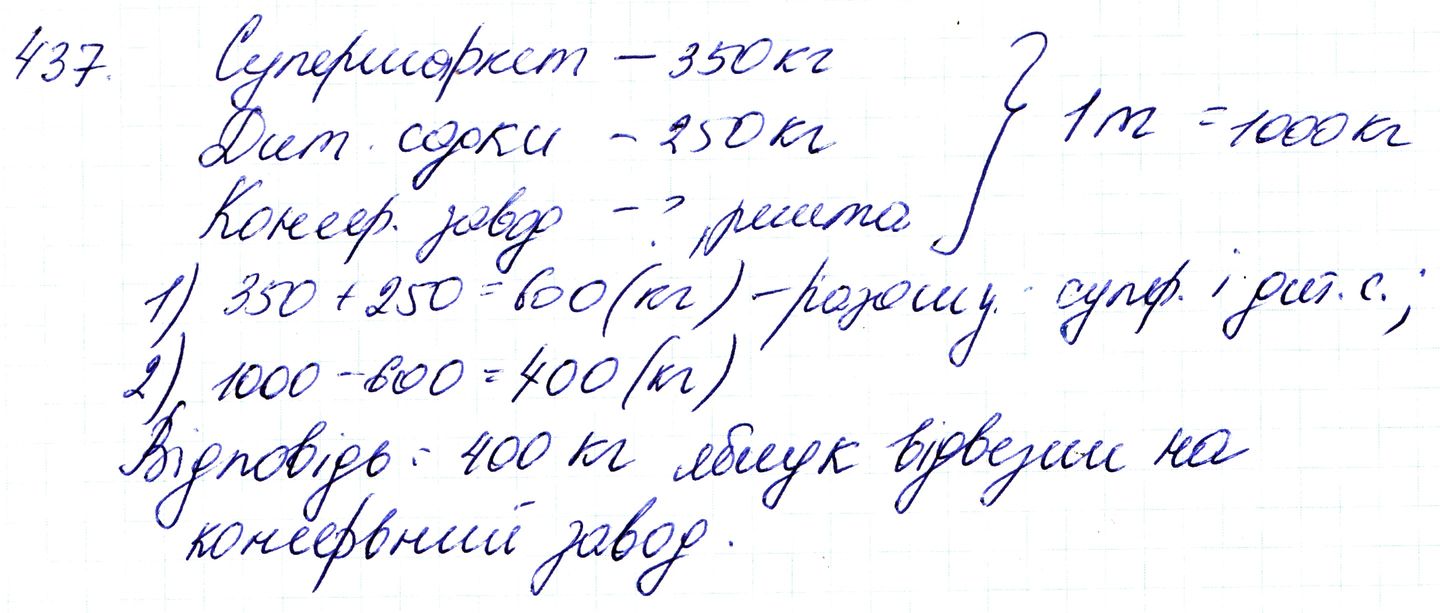 437. Супермаркет – 350 кг
Дит. садки – 250 кг } 1 т = 1000 кг
Консер. завод – ? решта
1) 350 + 250 = 600 (кг) – разом у супер. і дит. с.;
2) 1000 – 600 = 400 (кг)
Відповідь: 400 кг яблук відвезли на
консервний завод.